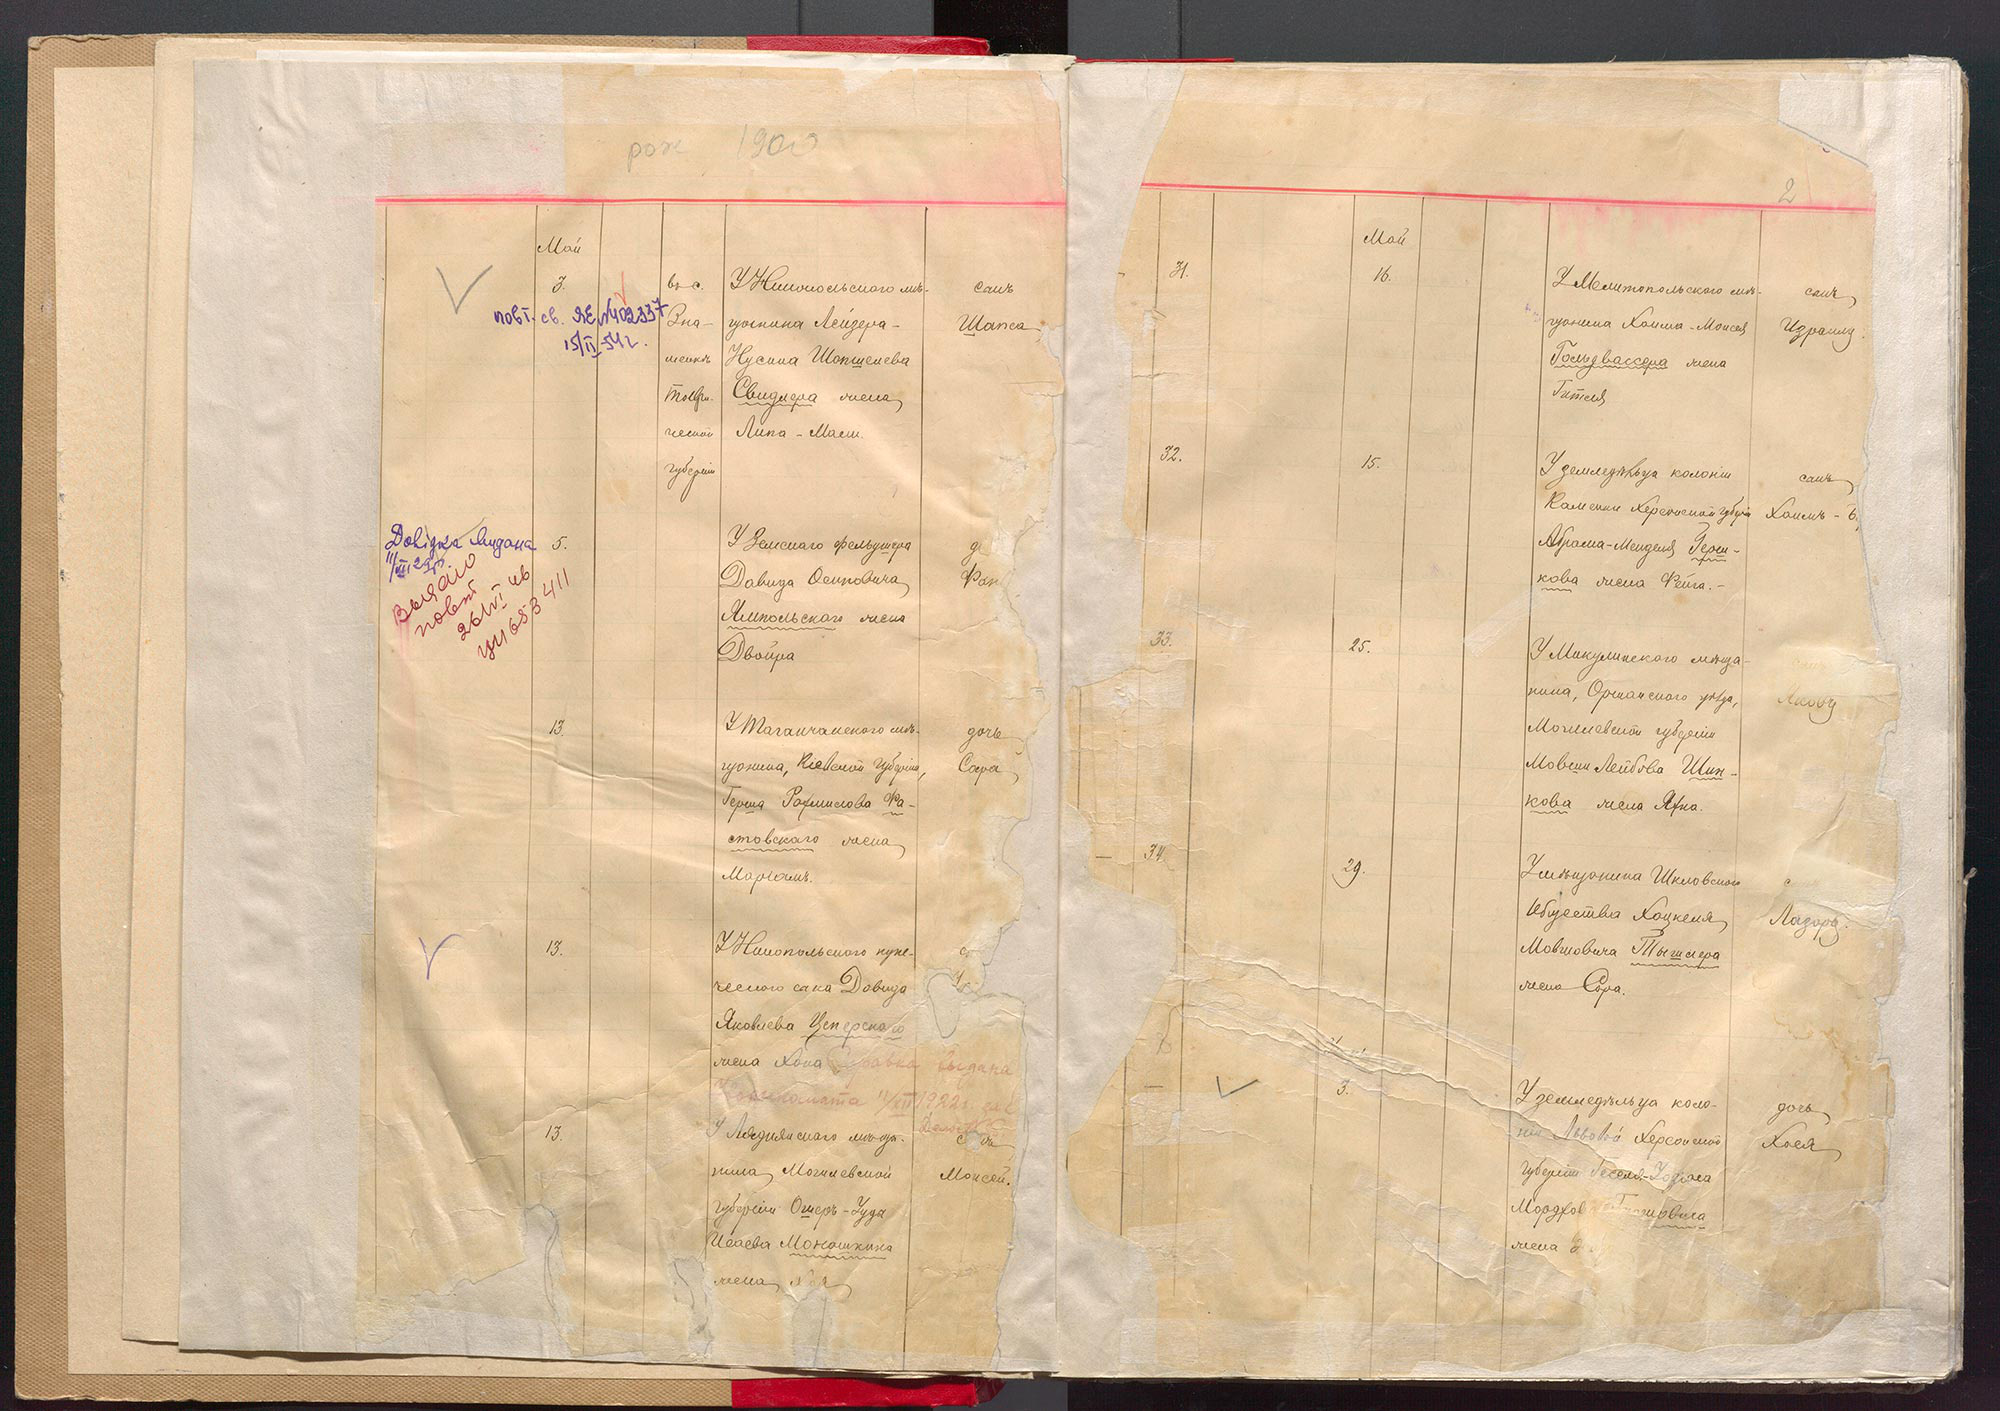 рож 1900
Май
3.
въ с.
Зна-
менкѣ
Таври-
ческой
губерніи
У Никополь­скаго мѣ-
щанина Лейзера-
Нусина Шапшелева
Свидлера жена
Липа - Маси.
сынъ
Шапса
повт. св. ЯЕ №402337
15/II 54 г.
Довідка видана
Выдано
повт
26/VI
653411
5.
У Земскаго фельдшера
Давида Осиповича
Ямпольскаго жена
Двойра
13.
У Таганчанскаго мѣ-
щанина, Кіевской губерніи,
Герша Рахмилова Фа-
стовскаго жена
Маріамъ.
дочь
Сара
13.
У Никопольскаго купе-
ческаго сына Давида
Яковлева
жена Хана
выдана
1922
13.
У Ляднянскаго мѣща-
нина Могилевской
губерніи Ошеръ-Іуды
Исаева Монашкина
жена
Моисей.
2
Май
31.
16.
У Мелитопольскаго мѣ-
щанина Хаима-Моисея
Гольдвассера жена
Гителя
сынъ
Израиль.
32.
15.
У земледѣльца колоніи
Каменки Херсонской губерніи
Абрама-Менделя Герш-
кова жена Фейга. -
сынъ
Хаимъ -
33.
25.
У Микулинскаго мѣща-
нина, Оршанскаго уѣзда,
Могилевской губерніи
Мовши Лейбова Шин-
кова жена Яхна.
сынъ
Яковъ
34.
29.
У мѣщанина Шкловскаго
общества Хацкеля
Мовшовича Тышлера
жена Сора.
Лазарь.
3.
У земледѣльца коло-
ніи Львовой Херсонской
губерніи
жена
дочь
Хася